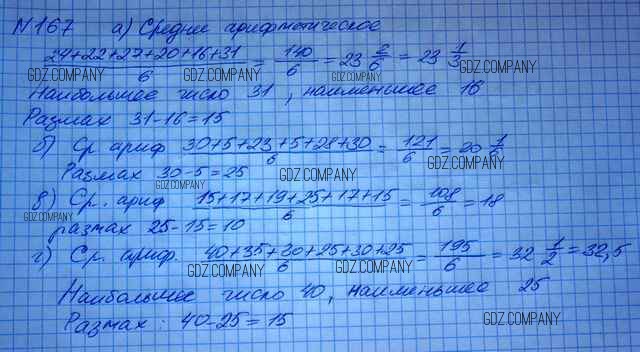 №167 а) Среднее арифметическое
24+22+27+20+16+31/6 = 140/6 = 23 2/6 = 23 1/3
GDZ.COMPANY GDZ.COMPANY GDZ.COMPANY GDZ.COMPANY
Наибольшее число 31, наименьшее 16
Размах 31-16=15
б) Ср. ариф 30+5+23+5+28+30/6 = 121/6 = 20 1/6
Размах 30-5=25
GDZ.COMPANY GDZ.COMPANY
в) Ср. ариф 15+17+19+25+17+15/6 = 108/6 = 18
GDZ.COMPANY
размах 25-15=10
г) Ср. ариф. 40+35+30+25+30+25/6 = 195/6 = 32 1/2 = 32,5
GDZ.COMPANY GDZ.COMPANY
Наибольшее число 40, наименьшее 25
Размах: 40-25=15
GDZ.COMPANY